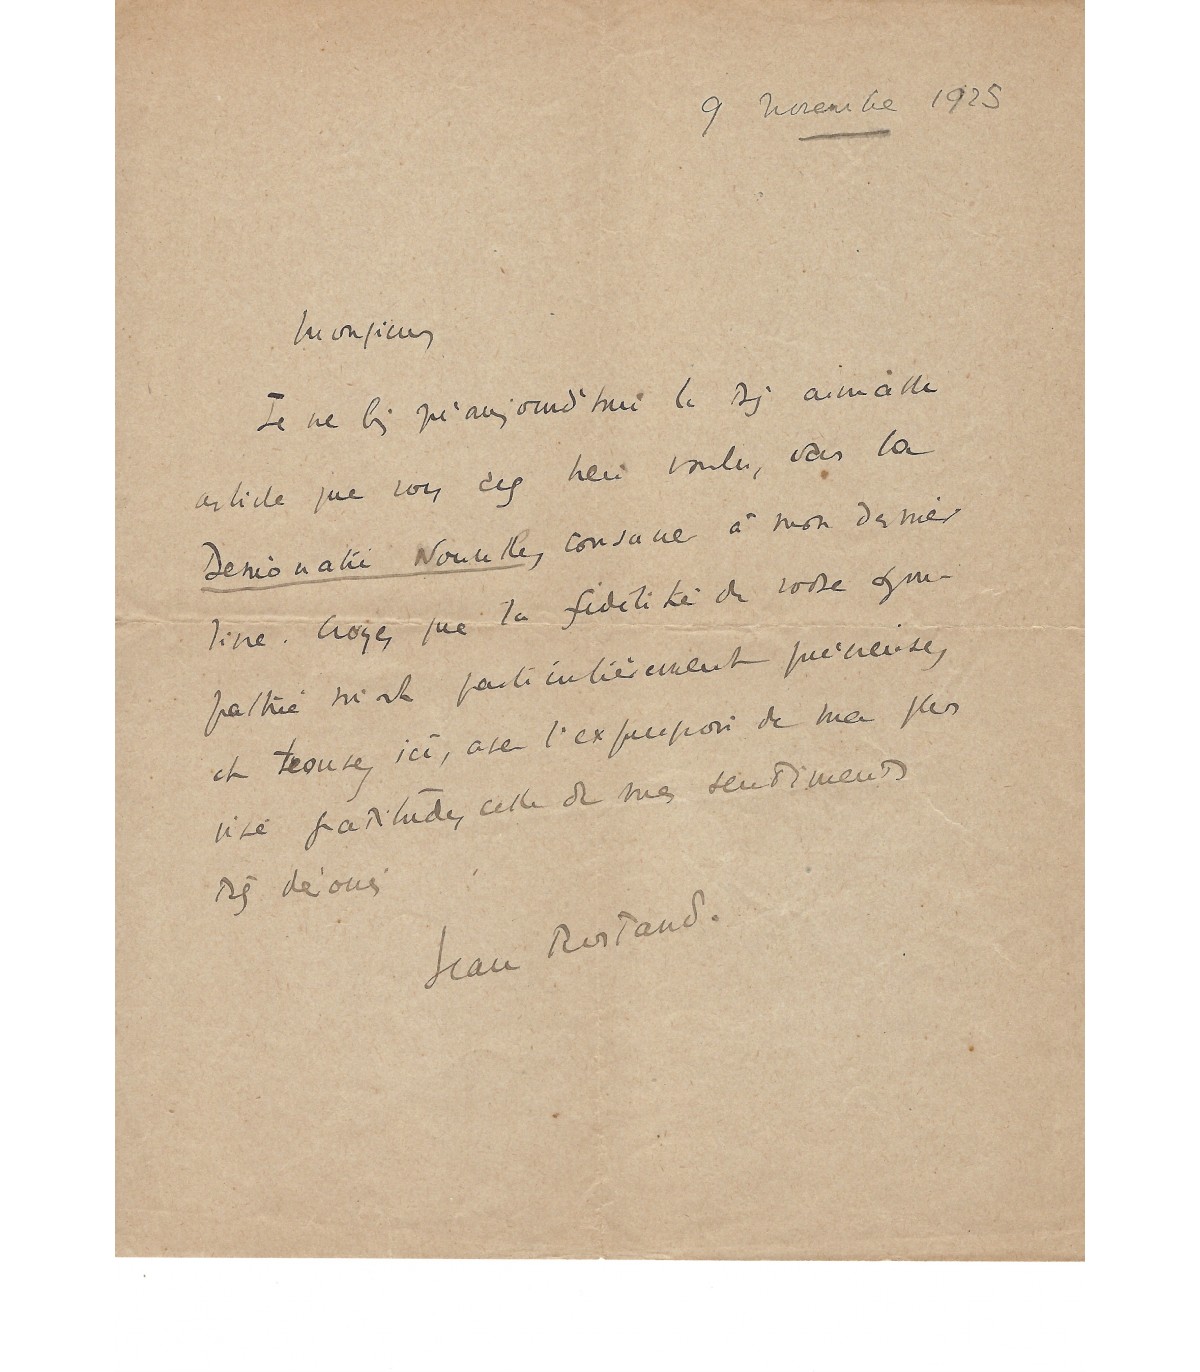 9 novembre 1925
Monsieur
Je ne lis qu'aujourd'hui le très aimable
article que vous avez bien voulu, dans la
Démocratie Nouvelle, consacrer à mon dernier
livre. Croyez que la fidélité de votre sym-
pathie m'est particulièrement précieuse,
et trouvez ici, avec l'expression de ma plus
vive gratitude, celle de mes sentiments
très dévoués
Jean Rostand.